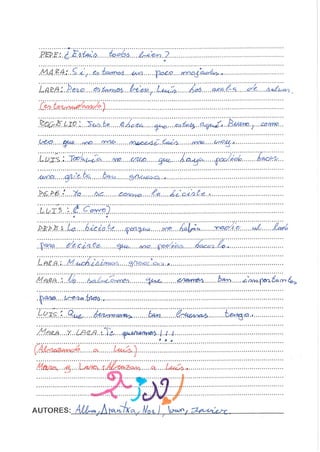 PEPE: ¿Estáis todos bien?
MARA: Sí, estamos un poco mojados.
LARA: Pero estamos bien, Luis nos acaba de salvar.
(entusiasmada)
ROGELIO: Justo ahora que estas aquí. Bueno, como
veo que no me necesitáis me voy.
LUIS: Todavía no creo que haya podido hacer
una grieta tan gruesa.
PEPE: Yo se como lo hiciste.
LUIS: ¿Como?
PEPE: Lo hiciste porque no había nadie al lado
para decirte que no podías hacerlo.
LARA: Muchísimas gracias.
MARA: No sabíamos que eramos tan importantes
para vosotros.
LUIS: Que hermanas tan buenas tengo.
MARA Y LARA: Te queremos!!!
(Abrazando a Luis)
Mara y Lara: Abrazan a Luis.
FIN
AUTORES: Alba, Arantxa, Noel, Juan, Javier